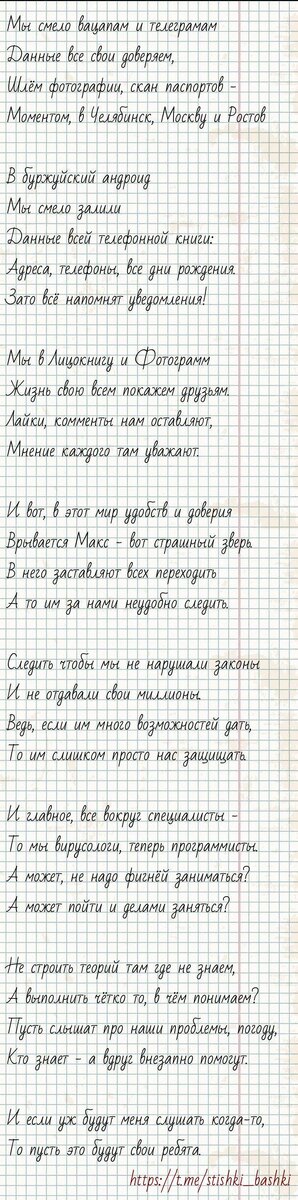 Мы смело вацапам и телеграмам
Данные все свои доверяем,
Шлём фотографии, скан паспортов -
Моментом, в Челябинск, Москву и Ростов
В буржуйский андроид
Мы смело залили
Данные всей телефонной книги:
Адреса, телефоны, все дни рождения.
Зато всё напомнят уведомления!
Мы в Лицокнигу и Фотограмм
Жизнь свою всем покажем друзьям.
Лайки, комменты нам оставляют,
Мнение каждого там уважают.
И вот, в этот мир удобств и доверия
Врывается Макс - вот страшный зверь.
В него заставляют всех переходить
А то им за нами неудобно следить.
Следить чтобы мы не нарушали законы
И не отдавали свои миллионы.
Ведь, если им много возможностей дать,
То им слишком просто нас защищать.
И главное, все вокруг специалисты -
То мы вирусологи, теперь программисты.
А может, не надо фигнёй заниматься?
А может пойти и делами заняться?
Не строить теорий там где не знаем,
А выполнить чётко то, в чём понимаем?
Пусть слышат про наши проблемы, погоду,
Кто знает - а вдруг внезапно помогут.
И если уж будут меня слушать когда-то,
То пусть это будут свои ребята.
https://t.me/stishki_bashki